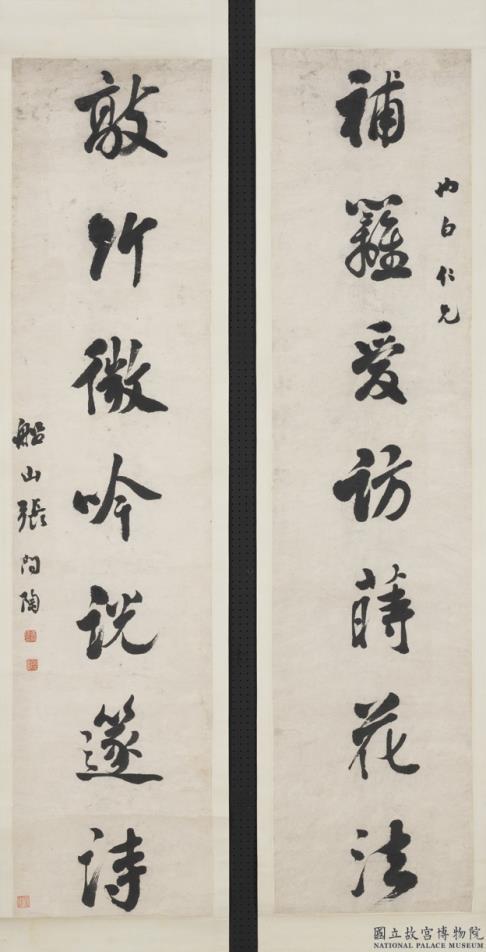 補籬愛訪蒔花法
白仁兄
敲竹微吟說篴詩
船山張問陶
國立故宮博物院
NATIONAL PALACE MUSEUM